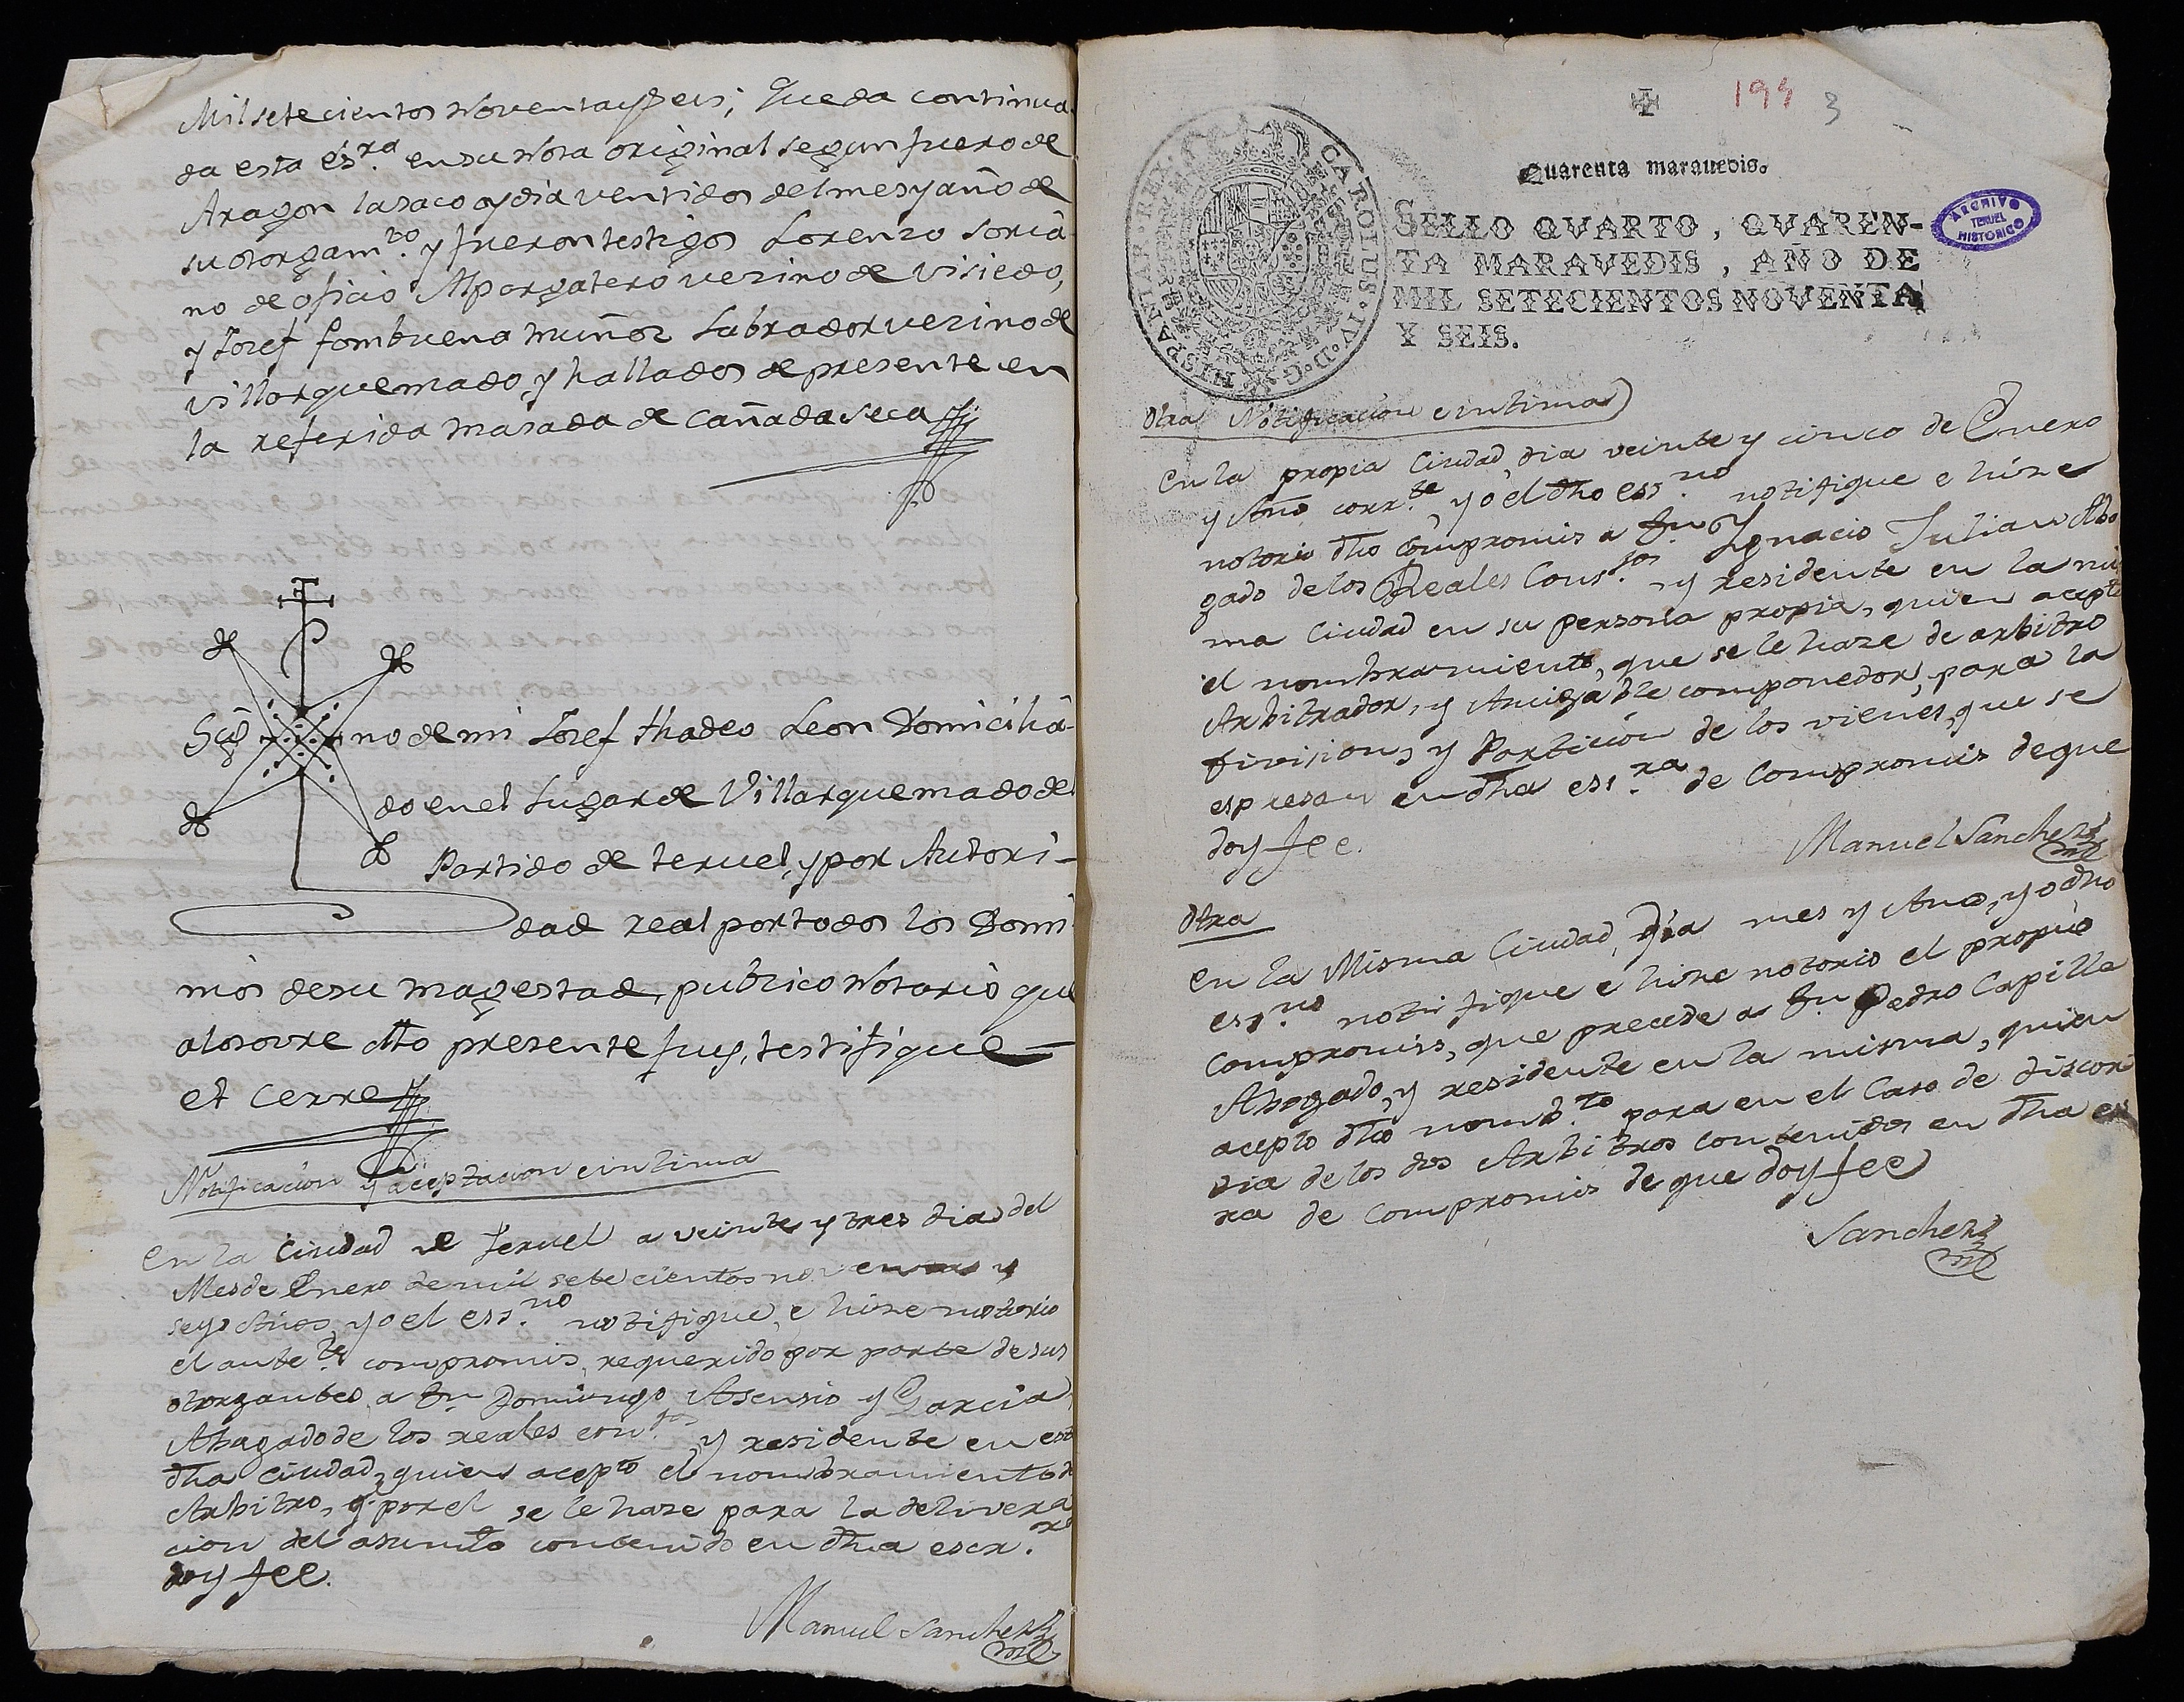 Mil setecientos Noventa y Seis; Queda continua-
da esta es.ra en su Nota original segun fuero de
Aragon la saco oy dia ventidos del mes y año de
su otorgam.to y fueron testigos Lorenzo Soria-
no de oficio Alpargatero vezino de Visiedo,
y Josef fombuena Muñoz Labrador vezino de
Villarquemado, y hallados de presente en
la referida Masada de Cañada Seca
Sig no de mi Josef thadeo Leon Domicilia-
do en el Lugar de Villarquemado del
Partido de teruel, y por Autori-
dad real por todos los Domi
nios de su Magestad, publico Notario que
a lo sovre dho presente fuy, testifique
et cerre
Notificacion y aceptacion e intima
En la Ciudad de Teruel a veinte y tres dias del
Mes de Enero de mil setecientos noventa y
seys Años, yo el ess.no notifique, e hize notorio
el ante.te compromis, requerido por parte de sus
otorgantes, a Dn Domingo Asensio y Garcia,
Abogado de los reales con.jos y residente en est
dha Ciudad, quien acepto el nombramiento de
Arbitro, q.e por el se le haze para la delivera
cion del asumto contenido en dha escr.ra
doy fee.
Manuel Sanchez
194 3
Quarenta marauedis.
CAROLUS·IV·D·G· HISPANIAR·REX·
SELLO QVARTO, QVAREN-
TA MARAVEDIS, AÑO DE
MIL SETECIENTOS NOVENTA
Y SEIS.
ARCHIVO
TERUEL
HISTORICO
Otra Notificacion e intima
En la propia Ciudad, dia veinte y cinco de Enero
y Año corr.te, yo el dho ess.no notifique e hize
notorio dho Compromis a Dn Ygnacio Julian Abo
gado de los Reales Cons.jos y residente en la mis
ma Ciudad en su persona propia, quien acepto
el nombramiento, que se le haze de arbitro
Arbitrador, y Amigable componedor, para la
division, y Particion de los vienes, que se
espresan en dha ess.ra de Compromis de que
doy fee.
Manuel Sanchez
Otra
En la Misma Ciudad, dia mes y Año, yo dho
ess.no notifique e hize notorio el propio
Compromis, que precede a Dn Pedro Capilla
Abogado, y residente en la misma, quien
acepto dho nomb.to para en el Caso de discor
dia de los dos Arbitros contenidos en dha es
ra de Compromis de que doy fee
Sanchez